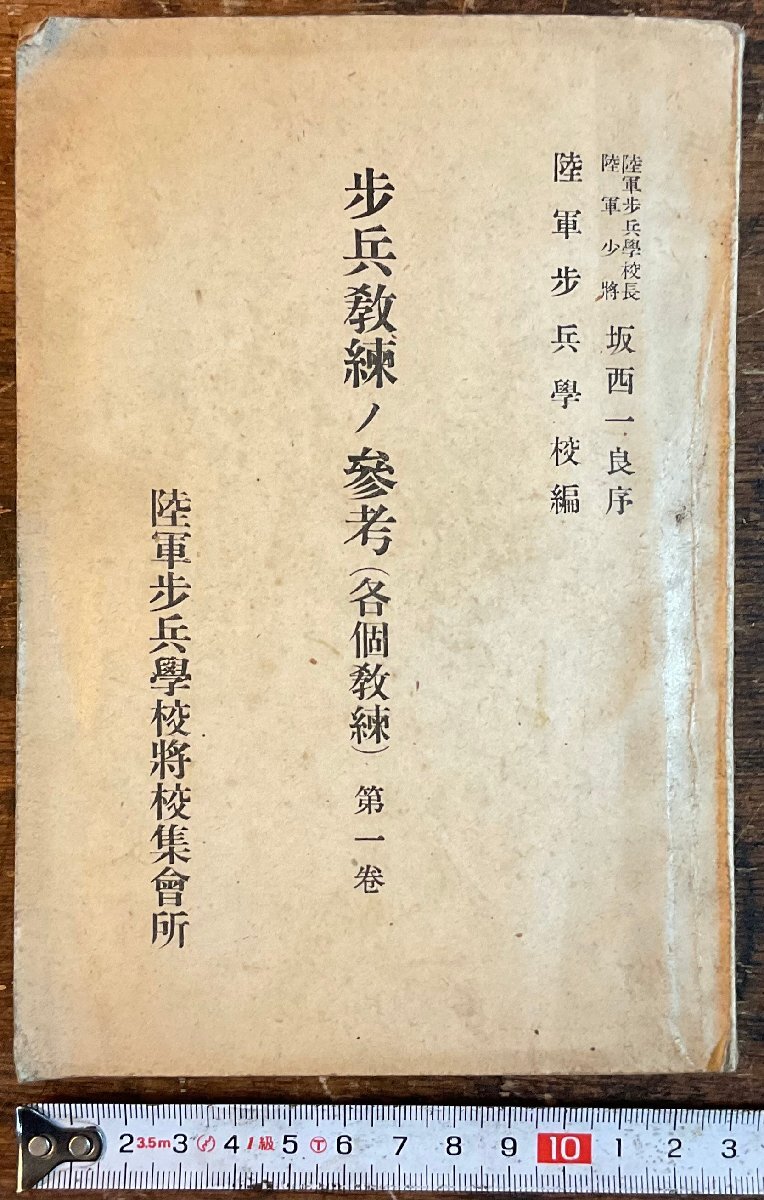 陸軍步兵學校長
陸軍少將
坂西一良序
陸軍步兵學校編
步兵教練ノ參考(各個教練)第一卷
陸軍步兵學校將校集會所
2 3.5m 3 4 1級 5 6 7 8 9 10 1 2 3